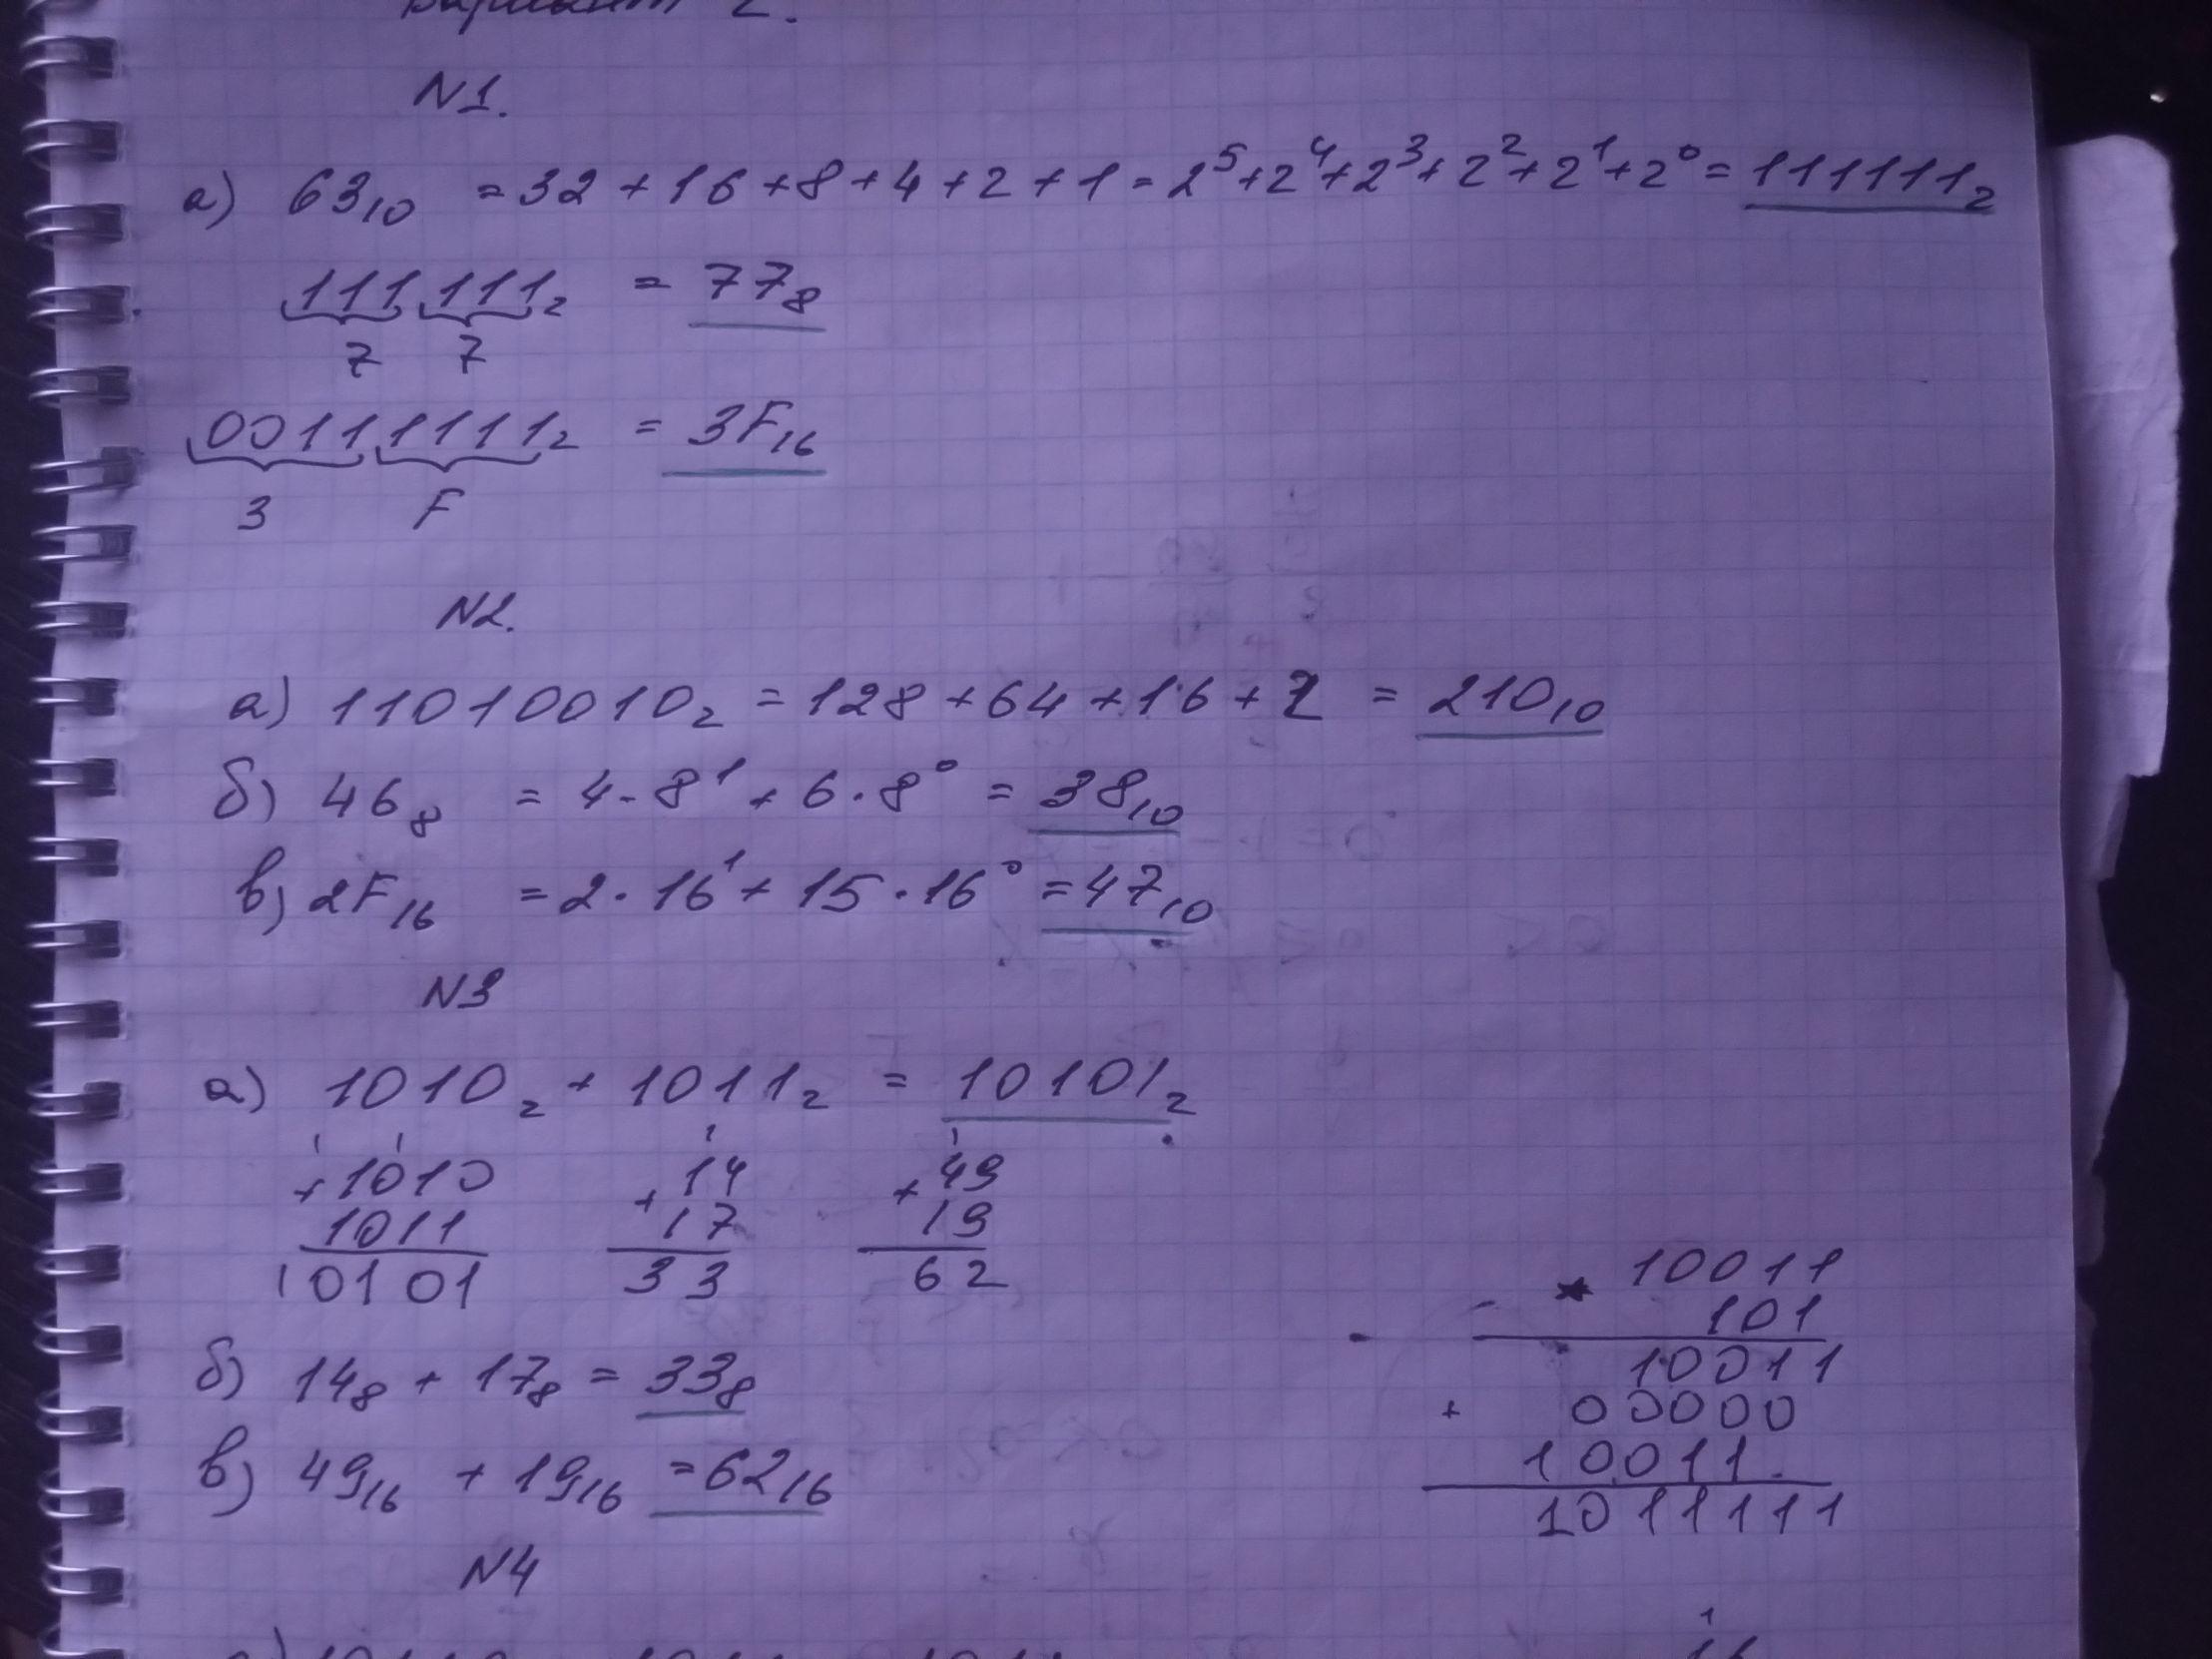 Вариант 2.
N1.
а) 63₁₀ = 32 + 16 + 8 + 4 + 2 + 1 = 2⁵ + 2⁴ + 2³ + 2² + 2¹ + 2⁰ = 111111₂
111 111₂ = 77₈
7 7
0011 1111₂ = 3F₁₆
3 F
N2.
а) 11010010₂ = 128 + 64 + 16 + 2 = 210₁₀
б) 46₈ = 4 · 8¹ + 6 · 8⁰ = 38₁₀
в) 2F₁₆ = 2 · 16¹ + 15 · 16⁰ = 47₁₀
N3
а) 1010₂ + 1011₂ = 10101₂
1 1
+ 1010
1011
10101
1
+ 14
17
33
1
+ 49
19
62
б) 14₈ + 17₈ = 33₈
в) 49₁₆ + 19₁₆ = 62₁₆
* 10011
101
10011
+ 00000
10011
1011111
N4